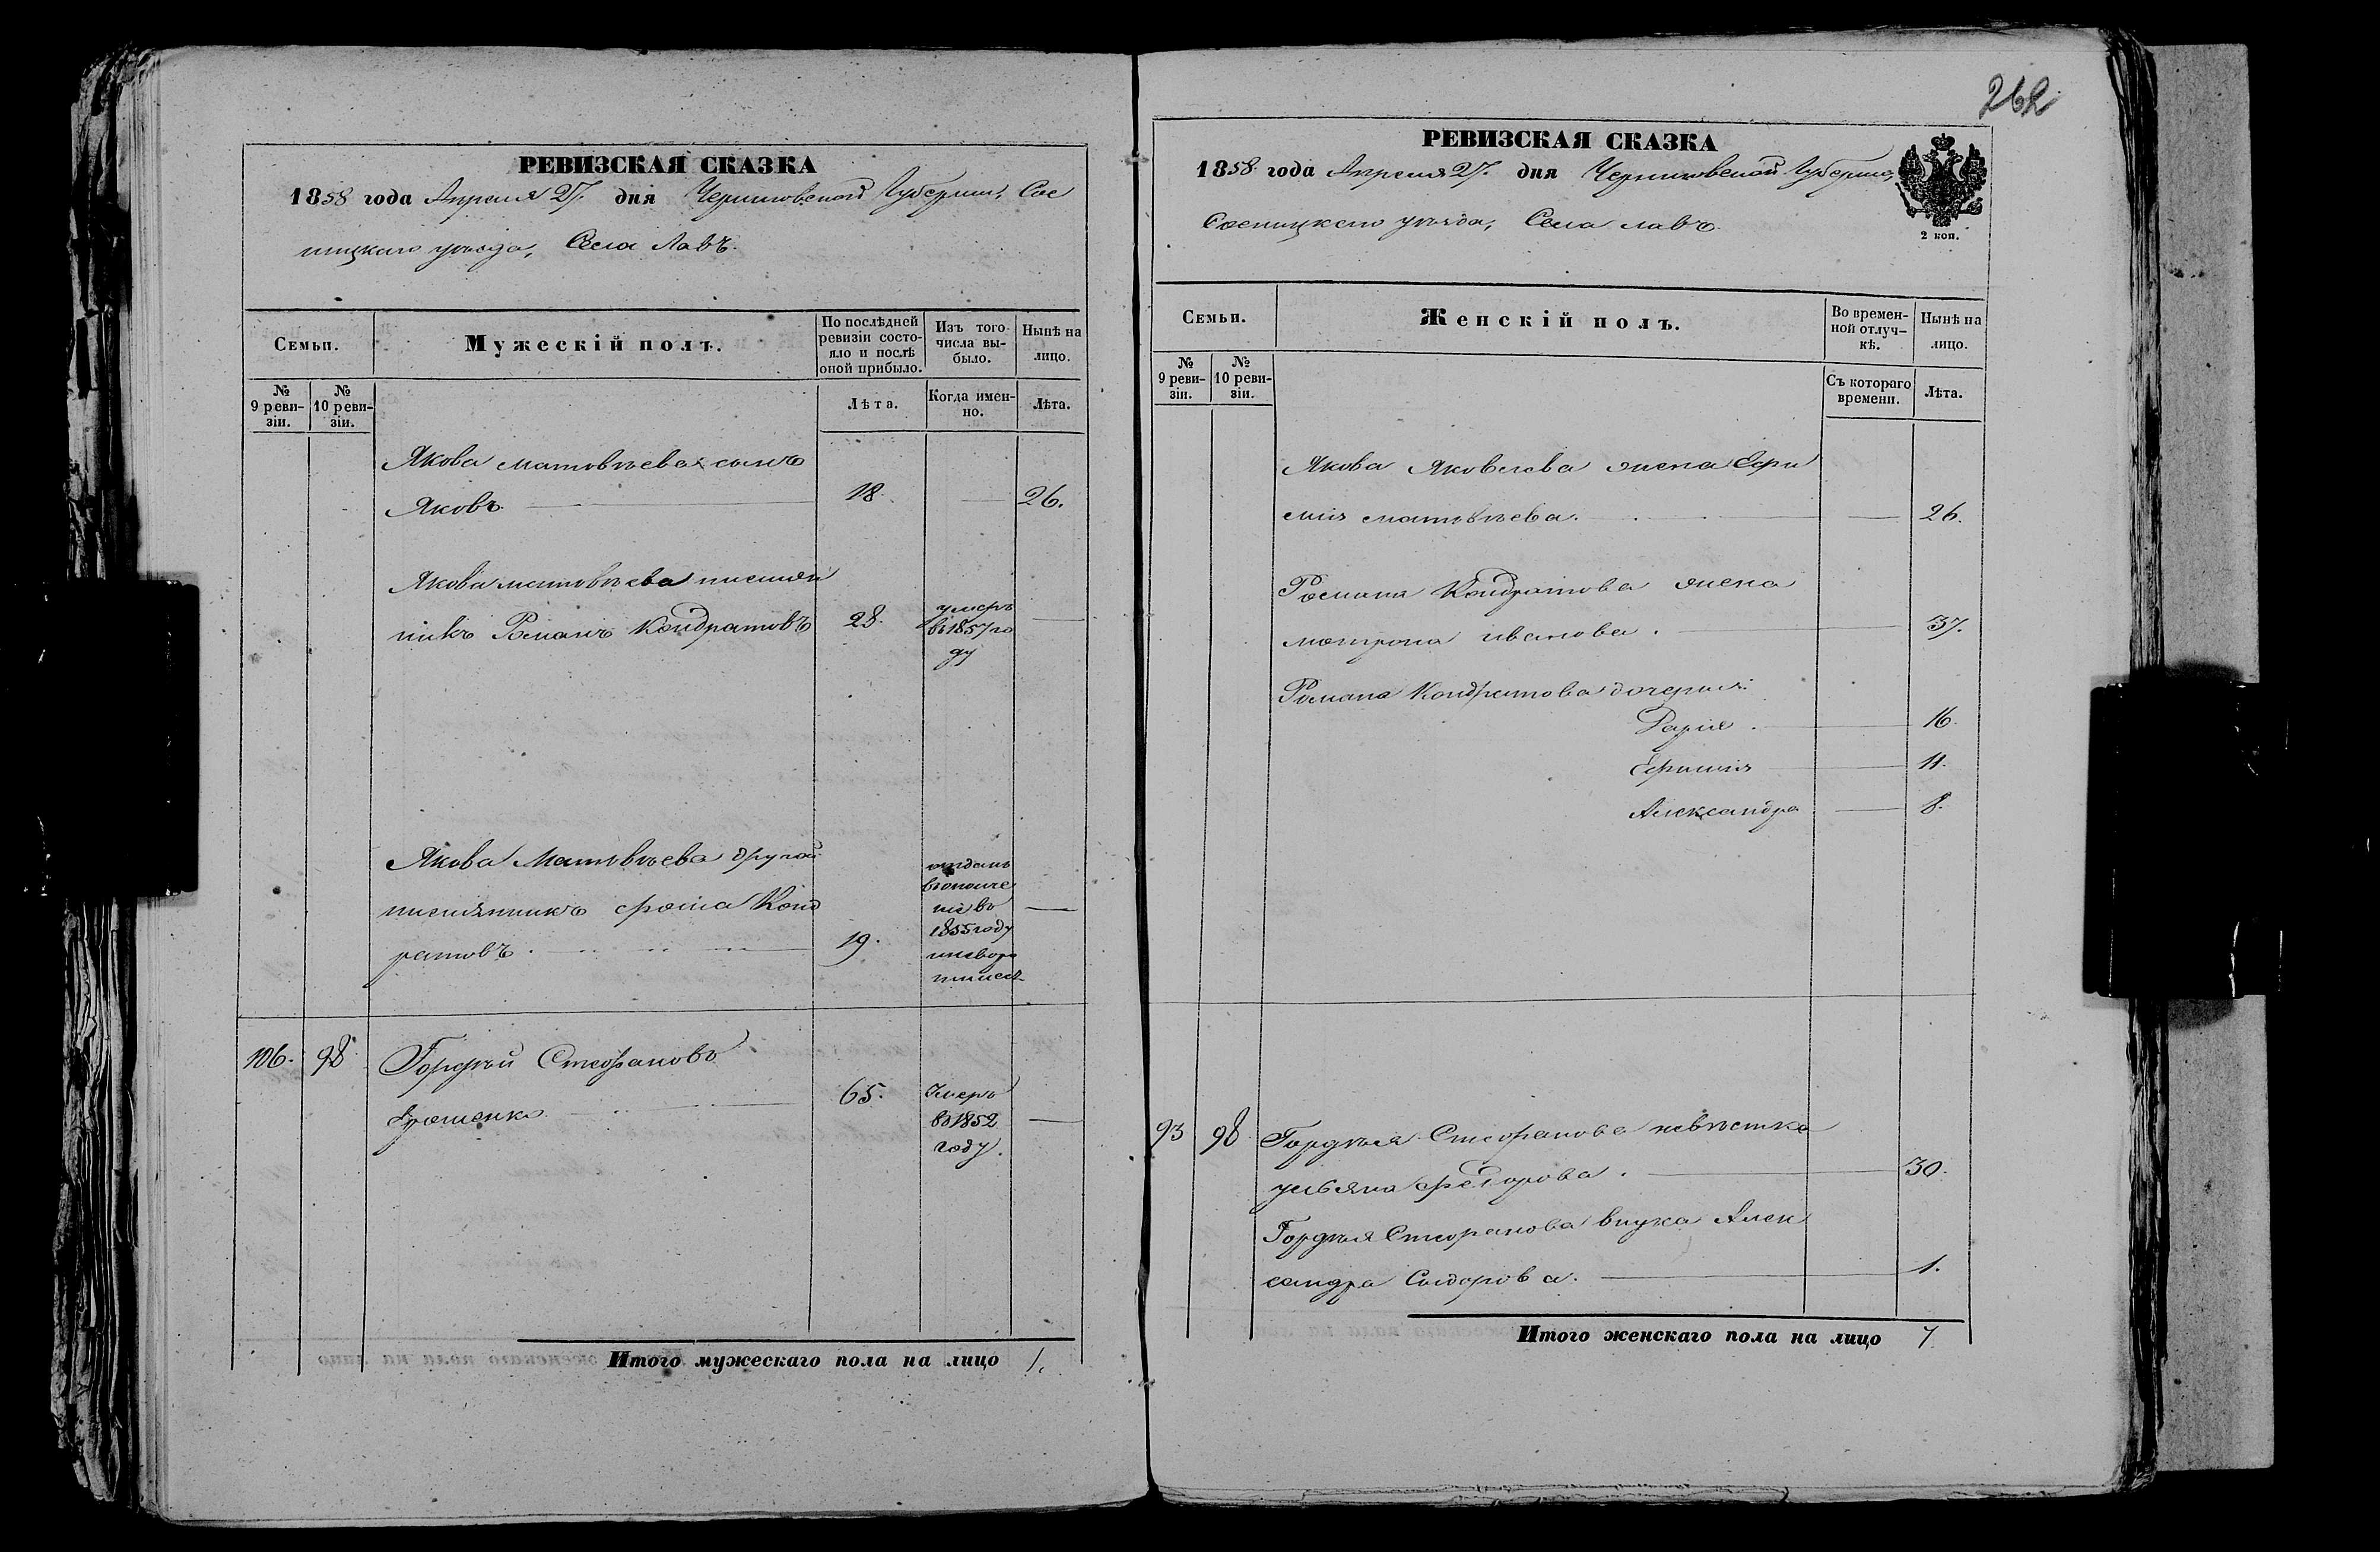 262
РЕВИЗСКАЯ СКАЗКА
1858 года Апреля 27. дня Черниговской Губернии, Сос
ницкаго уѣзда, Села Лавъ.
Семьи.
Мужескій полъ.
По послѣдней ревизіи состояло и послѣ оной прибыло.
Изъ того числа выбыло.
Нынѣ на лицо.
№ 9 ревизіи.
№ 10 ревизіи.
Лѣта.
Когда именно.
Лѣта.
Якова Матвѣева сынъ
Яковъ 18. 26.
Якова Матвѣева племян
никъ Романъ Кондратовъ 28. умеръ
въ 1857 го
ду
Якова Матвѣева другой
племянникъ Фома Конд
ратовъ 19. отданъ
въ ополче
ніе въ
1855 году
106. 98 Гордѣй Стефановъ
65. Умеръ
въ 1852
году.
Итого мужескаго пола на лицо 1.
РЕВИЗСКАЯ СКАЗКА
1858 года Апреля 27. дня Черниговской Губерніи,
Сосницкаго уѣзда, Села Лавъ.
2 коп.
Семьи.
Женскій полъ.
Во временной отлучкѣ.
Нынѣ на лицо.
№ 9 ревизіи.
№ 10 ревизіи.
Съ котораго времени.
Лѣта.
Якова Яковлева жена Ефи
мія Матвѣева. 26.
Романа Кондратова жена
Мотрона Иванова. 37.
Романа Кондратова дочери:
Дарія. 16.
Ефимія 11.
Александра 8.
93 98 Гордѣя Стефанова невѣстка
Ульяна Федорова. 30.
Гордѣя Стефанова внука Алек
сандра Сидорова. 1.
Итого женскаго пола на лицо 7